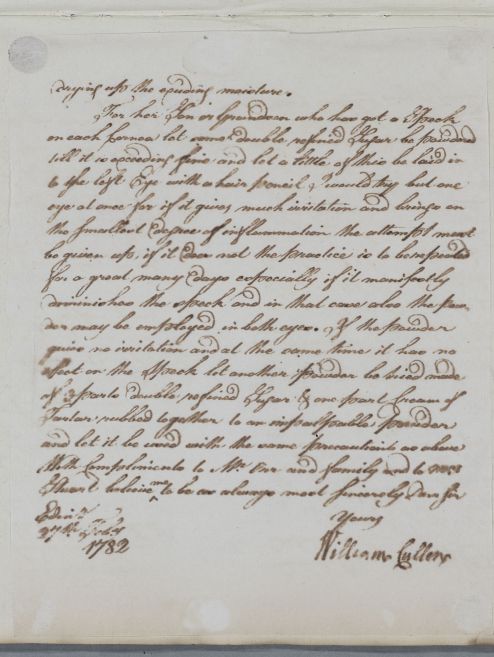 drying up the exuding moisture.
For her Son or Grandson who has got a Speck
on each Cornea let some double refined Sugar be powdered
till it is exceeding fine and let a little of this be laid in
to the left Eye with a hair pencil I would try but one
eye at once for if it gives much irritation and brings on
the smallest degree of inflammation the attempt must
be given up, if it does not the practice is to be repeated
for a great many days especially if it manifestly
diminishes the speck and in that case also the pow
der may be employed in both eyes. If the powder
give no irritation and at the same time it has no
effect on the Speck let another powder be tried made
of 3 parts double refined Sugar & one part Cream of
Tartar rubbed together to an impalpable powder
and let it be used with the same precautions as above
With Compliments to Mr Orr and family and to
Stuart believe me to be as always most sincerely Dear Sir
Yours
Edinr.
27th Feby
1782
William Cullen